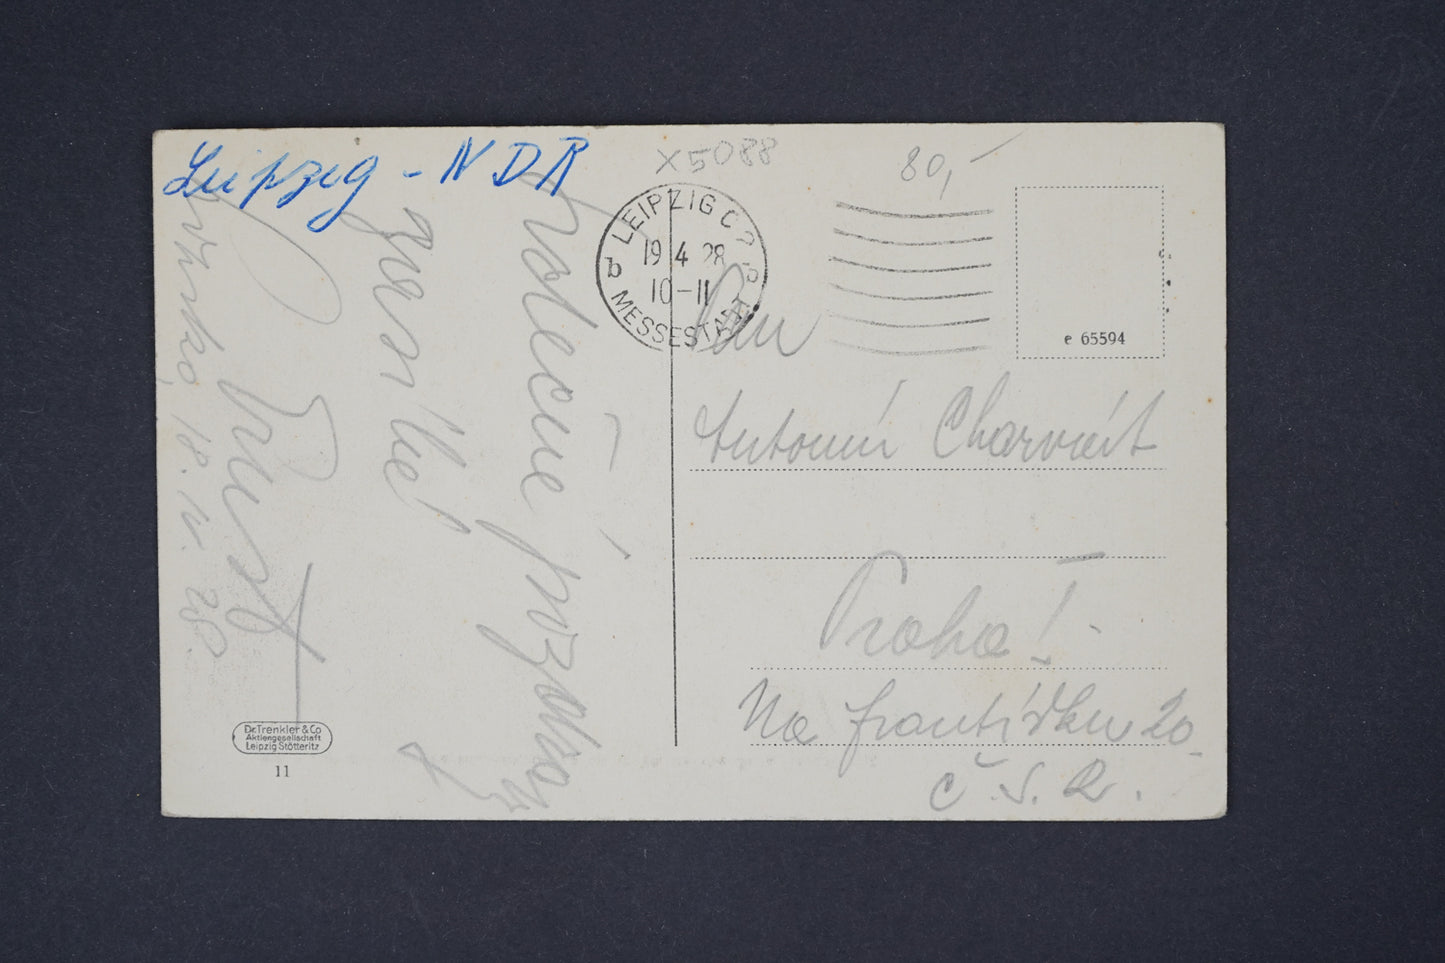 Leipzig - NDR
X5088
80,-
LEIPZIG C 2
b
19 4 28
10-11
MESSESTADT
e 65594
Srdečné pozdravy
Lipsko, 18. IV. 28.
Pan
Antonín Charvát
Praha I.
Na Františku 20
Č.S.R.
Dr. Trenkler & Co
Aktiengesellschaft
Leipzig Stötteritz
11